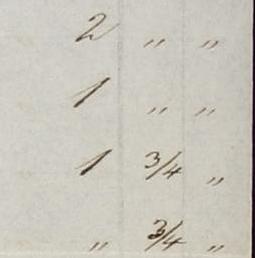 2 " "
1 " "
1 3/4 "
" 3/4 "